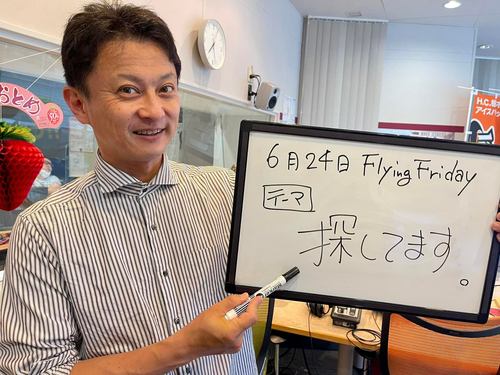 6月24日 Flying Friday
テーマ
探してます。
おとめ
H.C.栃木
アイスバックス